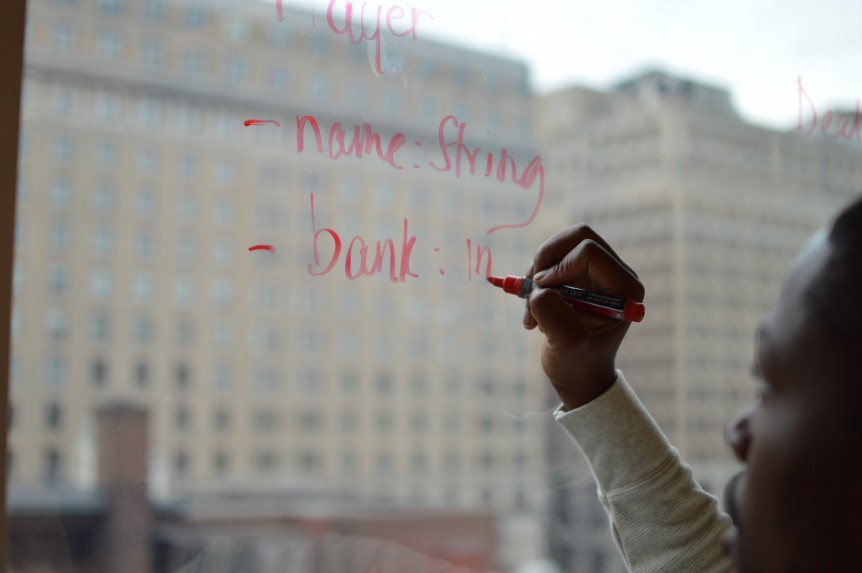 Player
- name: String
- bank: in